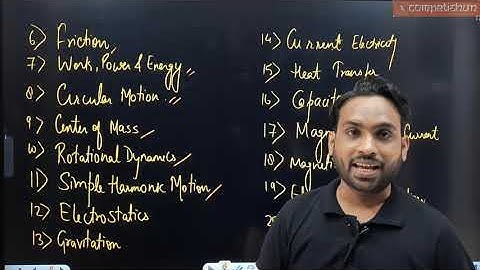 competishun
6) Friction
7) Work, Power & Energy
8) Circular Motion
9) Center of Mass
10) Rotational Dynamics
11) Simple Harmonic Motion
12) Electrostatics
13) Gravitation
14) Current Electricity
15) Heat Transfer
16)
17) Current
18)
19)